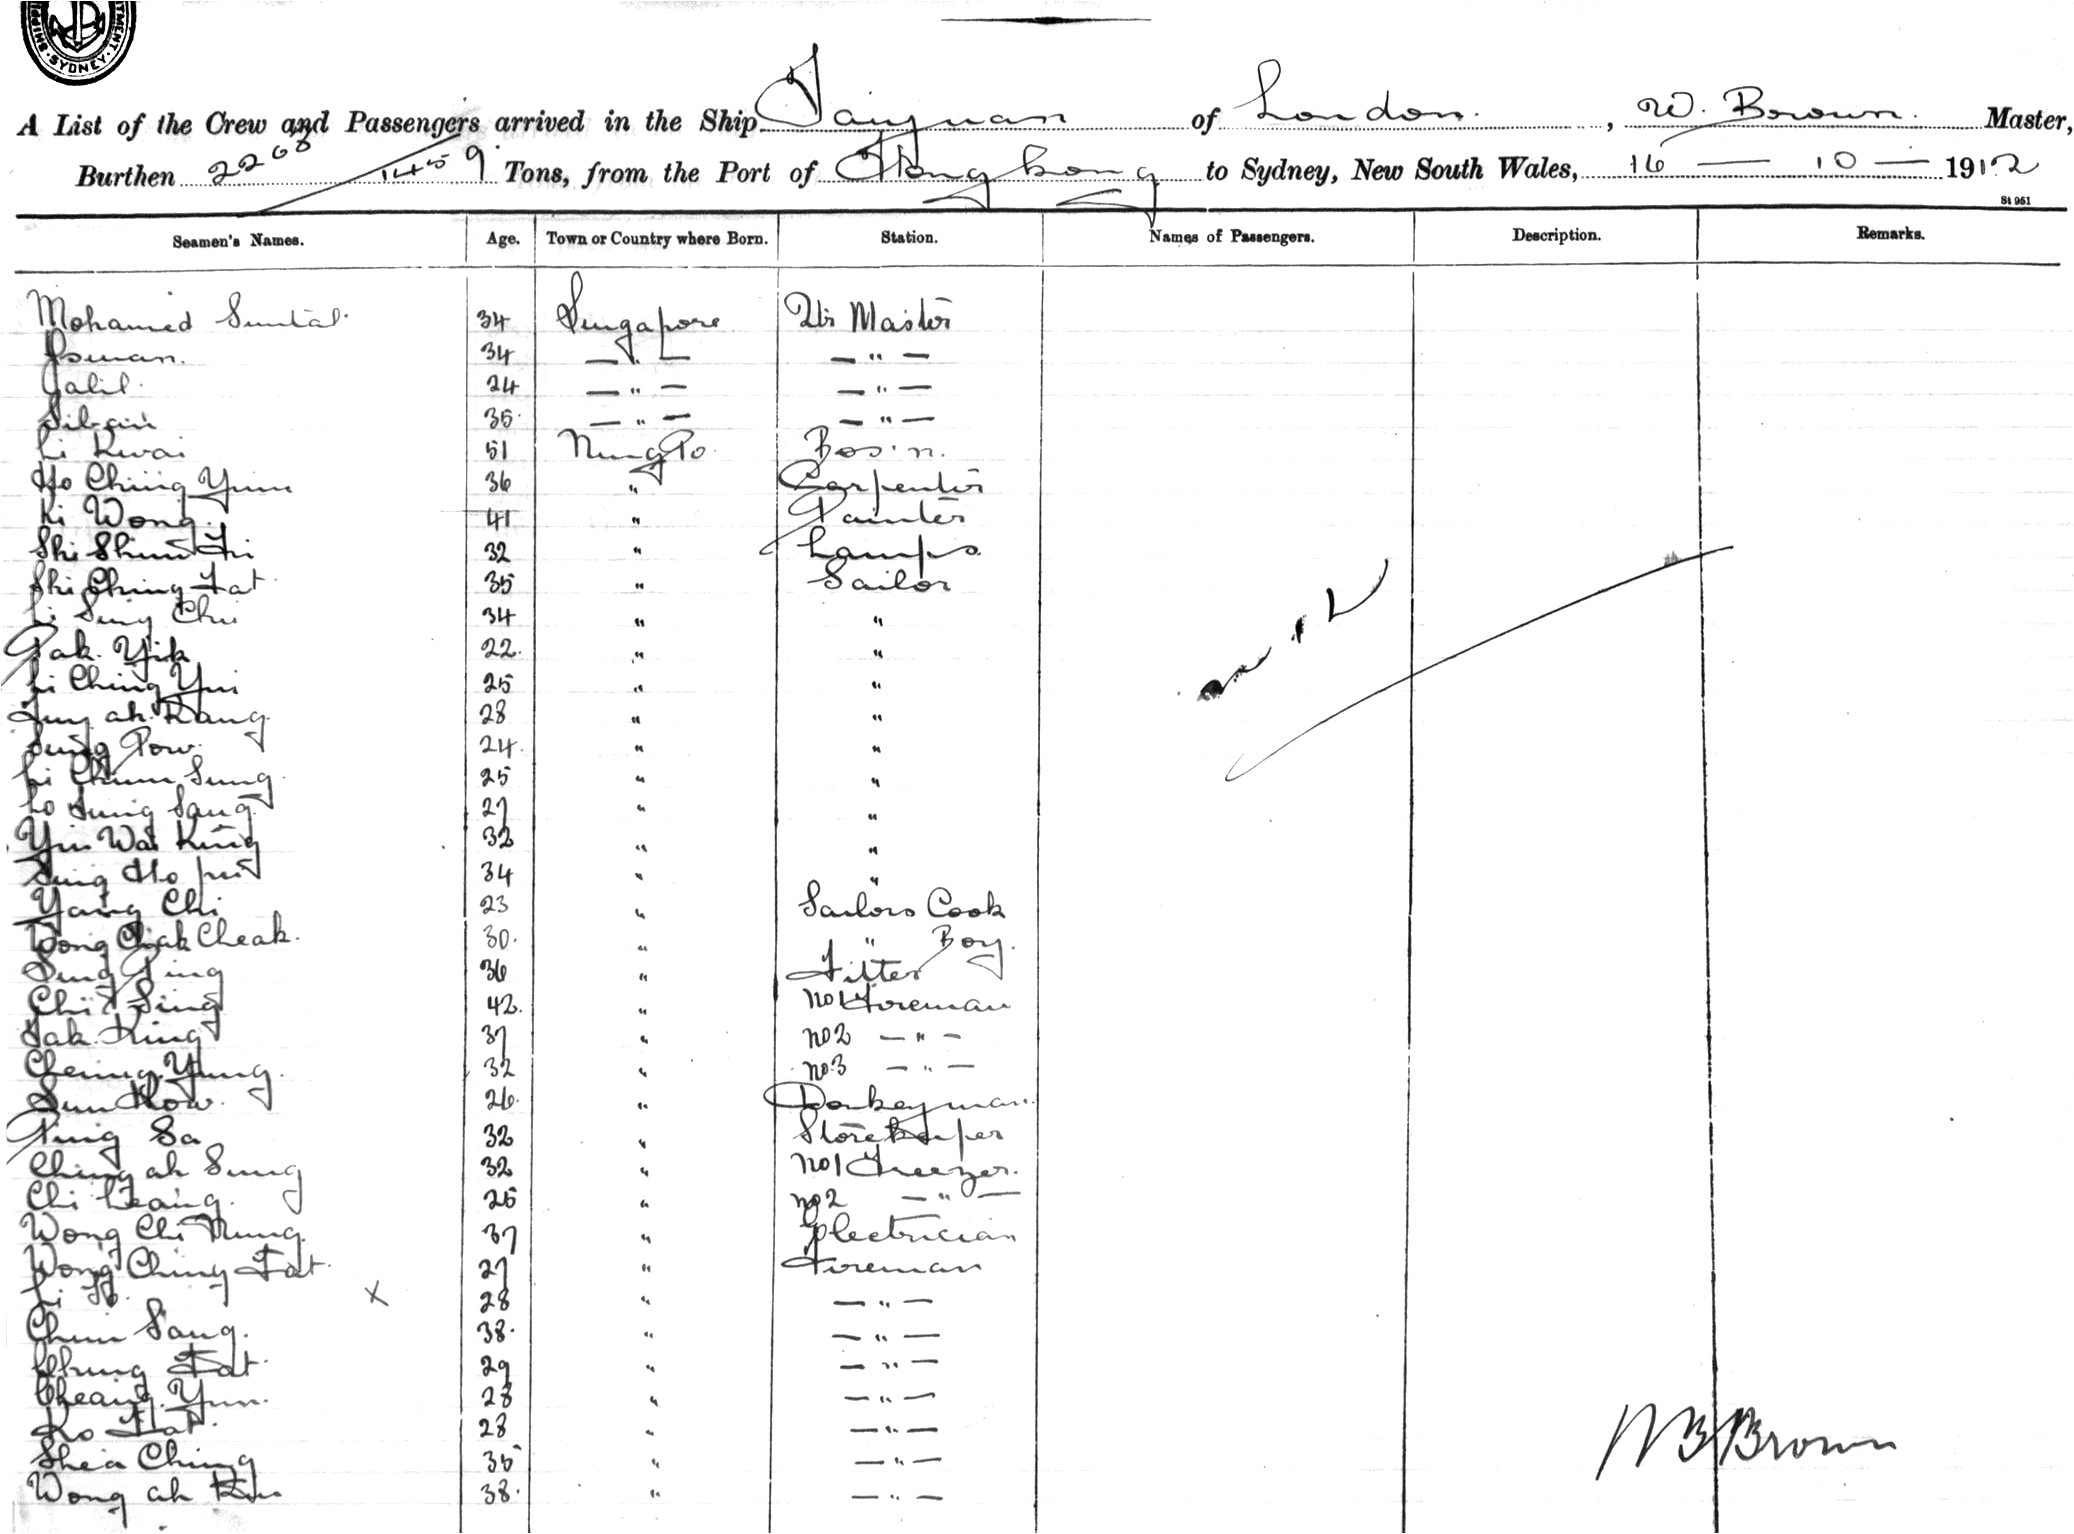 SHIPPING
SYDNEY
A List of the Crew and Passengers arrived in the Ship Taiyuan of London, W. Brown Master,
Burthen 2268 1459 Tons, from the Port of Hong Kong to Sydney, New South Wales, 16 — 10 — 1912
St 961
Seamen's Names. Age. Town or Country where Born. Station. Names of Passengers. Description. Remarks.
Mohamed 34 Singapore Qtr Master
Osman. 34 — " — — " —
Jalil. 24 — " — — " —
35 — " — — " —
Li Kwai 51 Ning Po Bos'n.
Ho Ching Yuen 36 " Carpenter
Ki Wong 41 " Painter
Shi 32 " Lamps
Shi Ching Fat 35 " Sailor
Li Sung Chu 34 " "
Pak Yik 22 " "
Li Ching Yui 25 " "
ah Kang 28 " "
Sung Pow. 24 " "
Li Chun Sung 25 " "
Lo Sung Sang 27 " "
Yui Wai King 32 " "
Sing Ho 34 " "
Yang Chi 23 " Sailors Cook
Wong Cheak. 30 " " Boy.
Sing Ping 36 " Fitter
Chi Sing 42 " No1 Foreman
Pak King 37 " no2 — " —
Cheung Yung. 32 " no.3 — " —
Sun How. 26 " Donkeyman
Ping Sa 32 " Storekeeper
Ching ah Sung 32 " No1 Freezer.
Chi Leang. 25 " no2 — " —
Wong Chi Mung 37 " Electrician
Wong Ching Fat. 27 " Fireman
Li X 28 " — " —
Chun Sang. 38 " — " —
Chung Fat. 29 " — " —
Cheang Yun. 28 " — " —
Ko Fat. 28 " — " —
Shea Ching 35 " — " —
Wong ah 38 " — " —
W B Brown